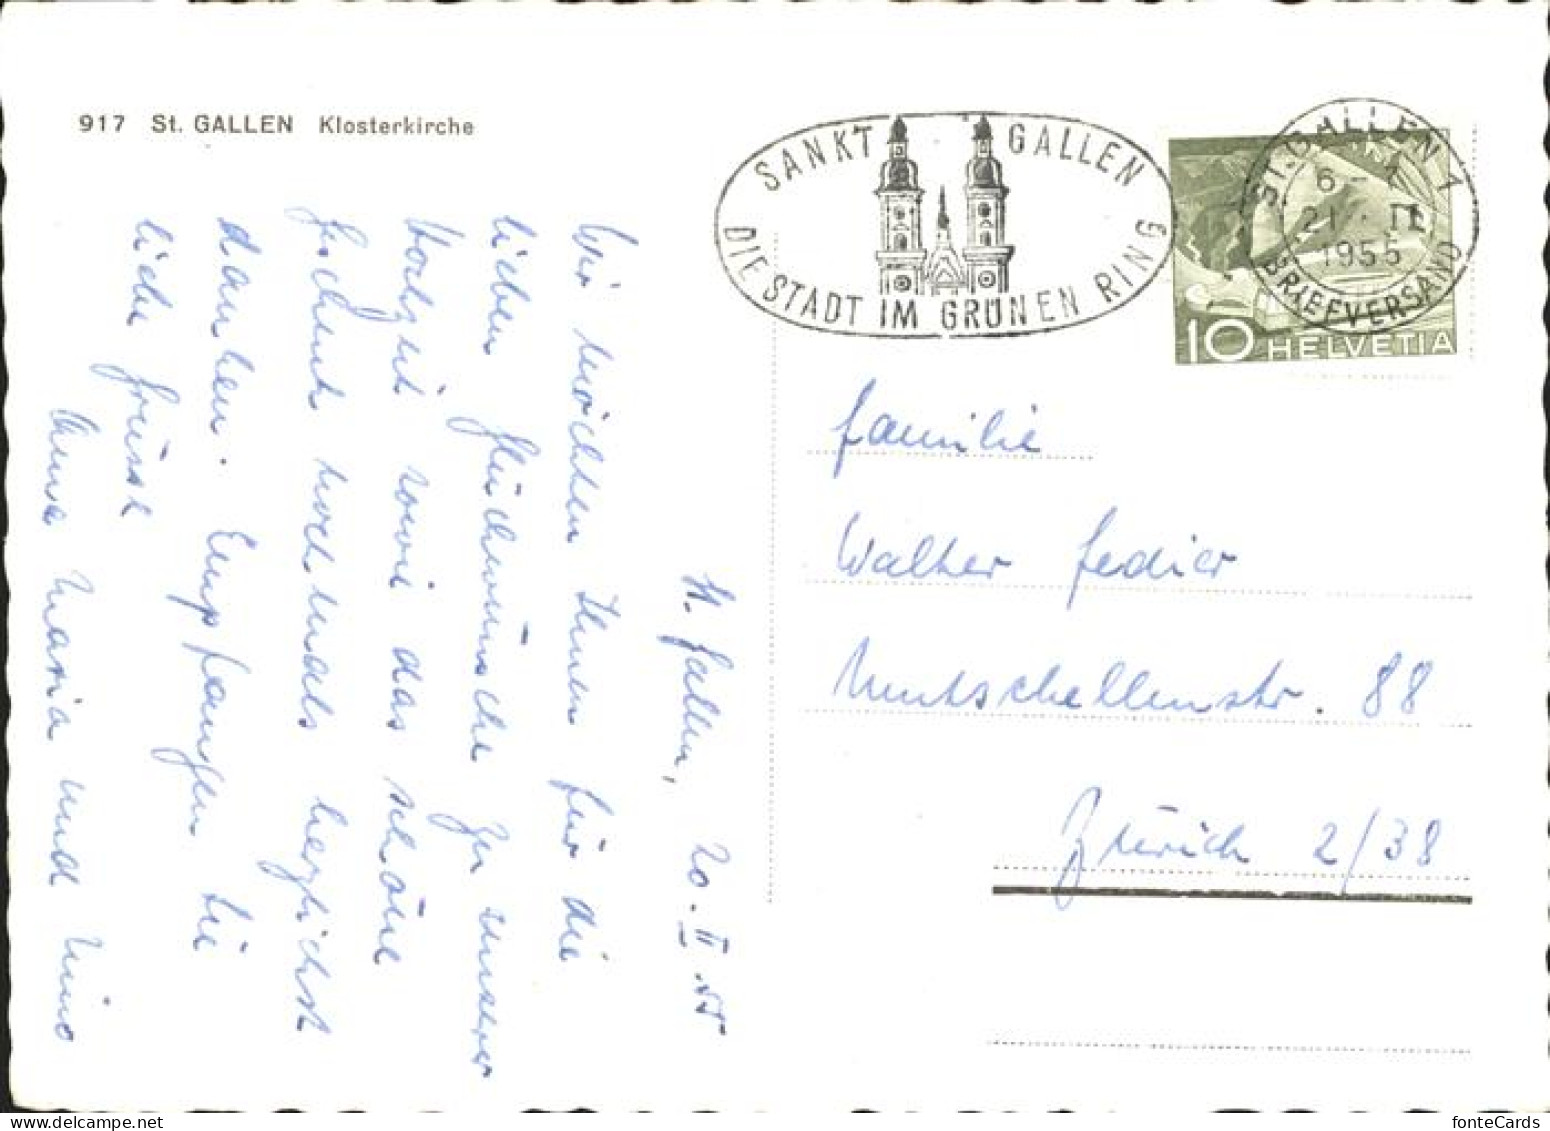 917 St. GALLEN Klosterkirche
SANKT GALLEN
DIE STADT IM GRÜNEN RING
ST. GALLEN 1
6-7
21. II
1955
BRIEFVERSAND
10 HELVETIA
St. Gallen, 20. II. 55
Wir möchten Ihnen für die
lieben Glückwünsche zu unserer
Hochzeit sowie das schöne
Geschenk nochmals herzlichst
danken. Empfangen Sie
liebe Grüsse
Anna Maria und Nino
Familie
Walther Fedier
Mutschellenstr. 88
Zürich 2/38
fonteCards